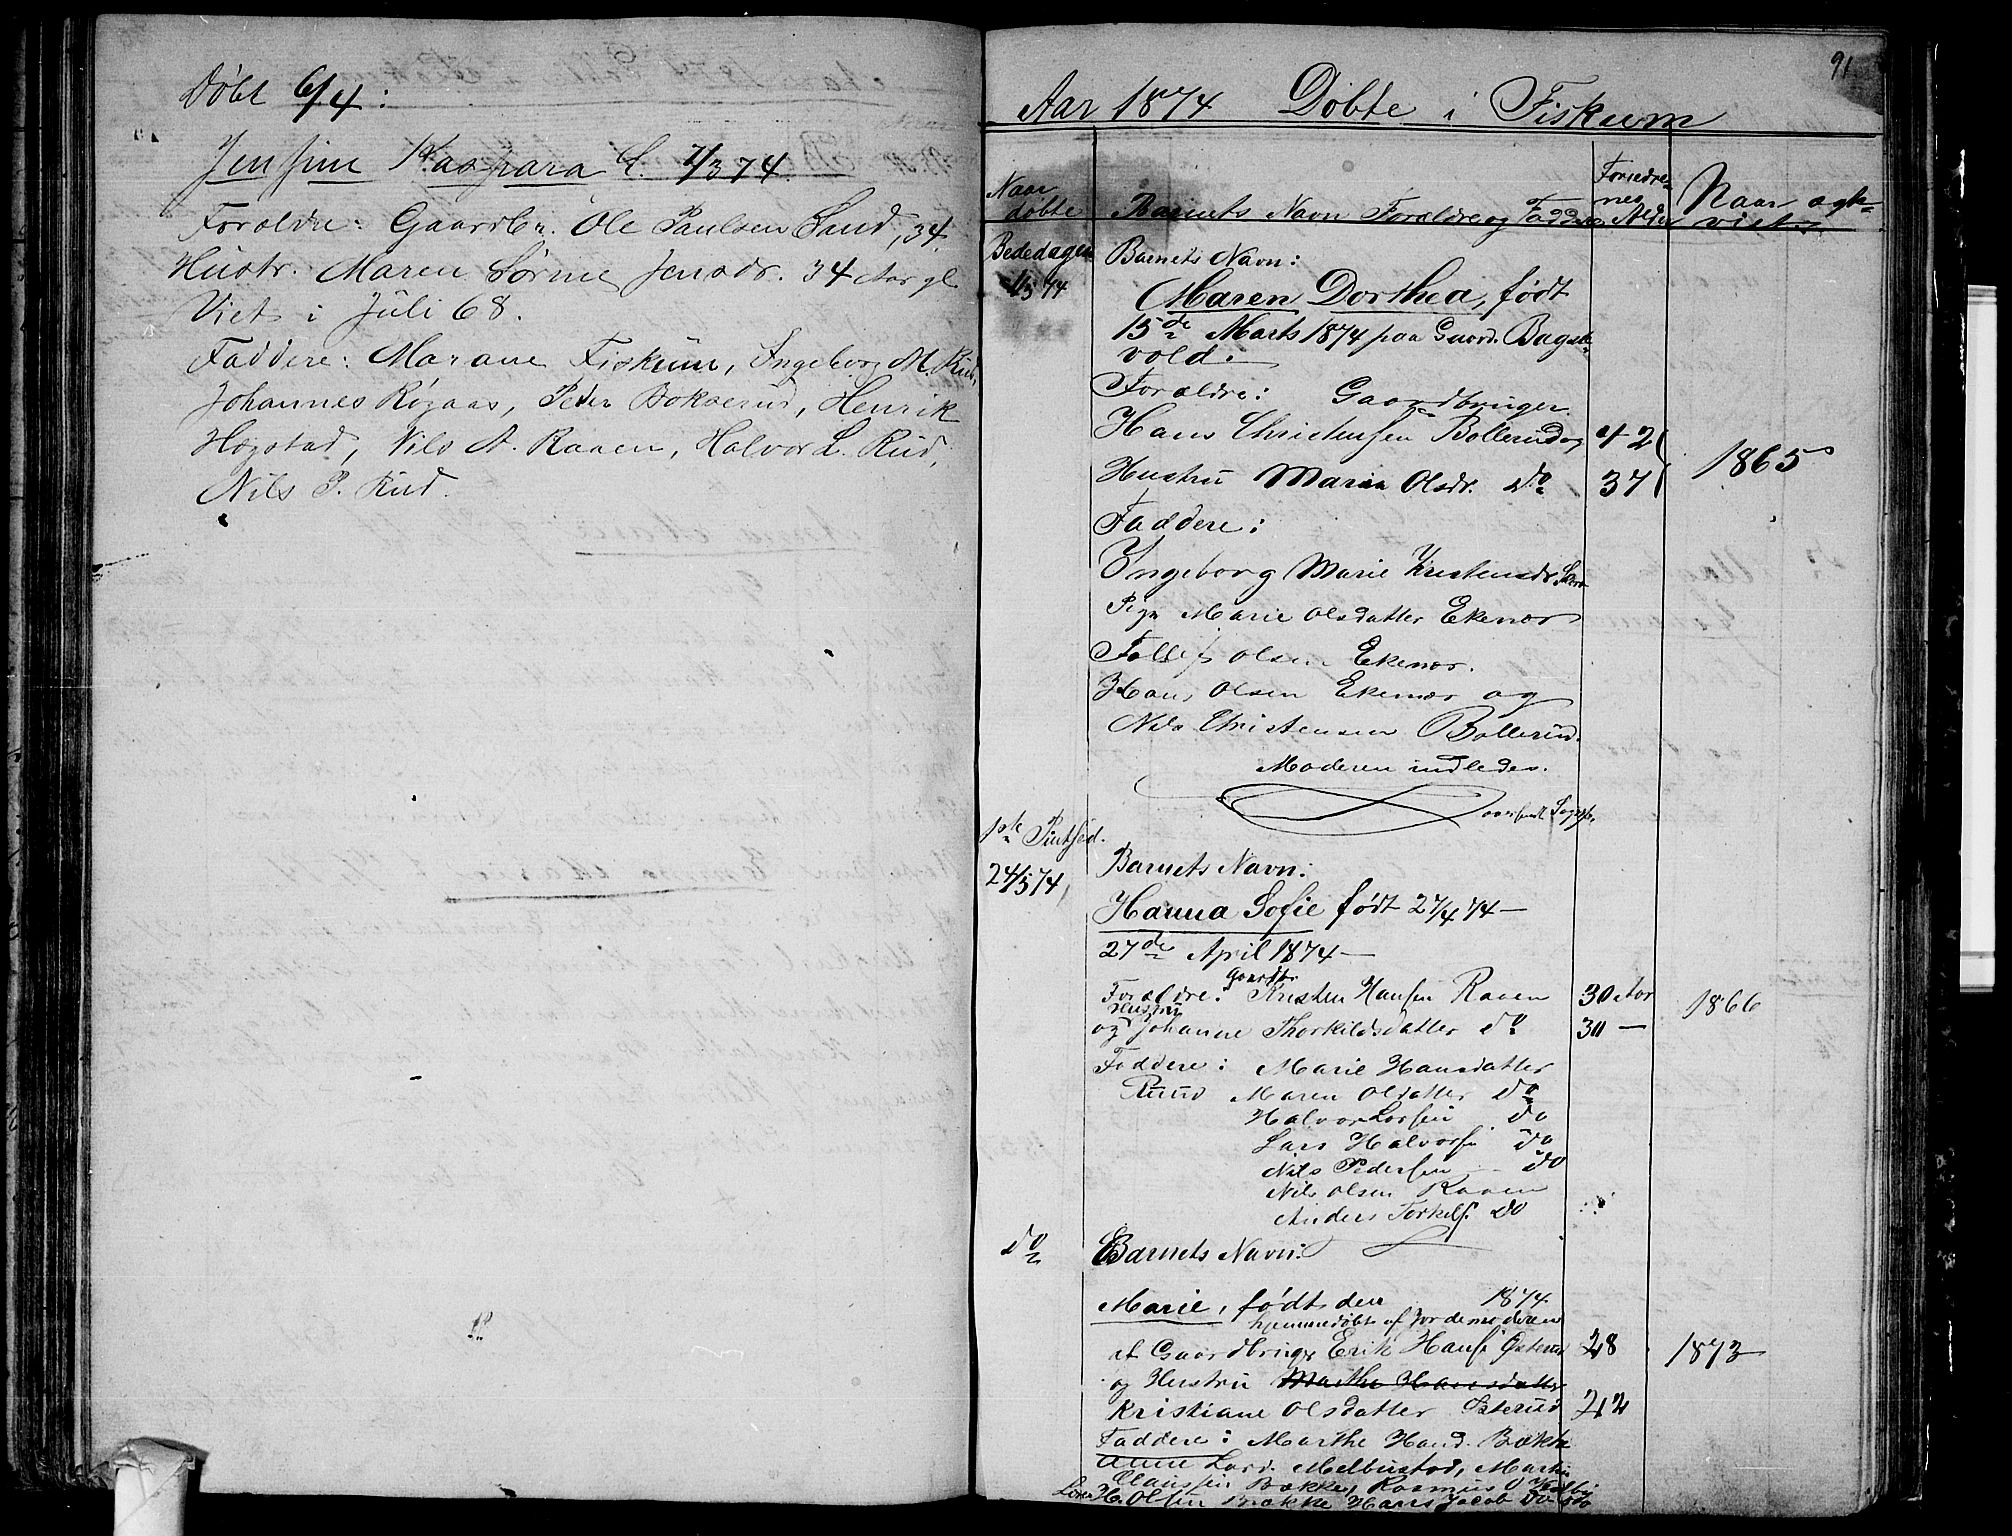 Døbt 6/4:
Jensine Kaspara f. 7/3 74.
Forældre: Gaardbr. Ole Paulsen Sand, 34.
Hustr. Maren Sørine Jensdr. 34 Aar gl.
Viet i Juli 68.
Faddere: Marane Fiskum, Ingeborg M. Rud,
Johannes Røgaas, Peter Bokserud, Henrik
Hogstad, Nils A. Raaen, Halvor L. Rud,
Nils P. Rud.
91.
Aar 1874 Døbte i Fiskum
Naar døbte
Barnets Navn Forældre og Faddre
Forældrenes Alder
Naar ægteviet
Bededagen 1/5 74
Barnets Navn:
Maren Dorthea, født
15de Marts 1874 paa Gaard. Bagstevold.
Forældre: Gaardbruger
Hans Christensen Bollerud og 42
1865
Hustru Maria Olsdr. do 37
Faddere:
Ingeborg Marie Kristensdr.
Pige Marie Olsdatter Ekenær
Tollef Olsen Ekenær.
Hans Olsen Ekenær og
Nils Christensen Bollerud.
Moderen indledes.
1ste Pintsed.
24/5 74,
Barnets Navn:
Hanna Sofie født 27/4 74 —
27de April 1874 —
Forældre: Gaardbr. Kristen Hansen Raaen 30 Aar 1866
og Hustru Johanne Thorkildsdatter do 30 —
Faddere: Marie Hansdatter
Ruud Maren Olsdatter do
Halvor Larsen do
Lars Halvors. do
Nils Pedersen do
Nils Olsen Raaen
Anders Torkils. do
do Barnets Navn:
Marie, født den 1874
hjemmedøbt af Jordemoderen
af Gaardbruger Erik Hans. Østerud 28 1873
og Hustru Marthe Hansdatter
Kristiane Olsdatter Østerud 22
Faddere: Marthe Hansd. Bække
Anne Larsd. Melbustad, Martin
Clausen Bække, Rasmus O
H. Olsen Bække Hans Jacob do